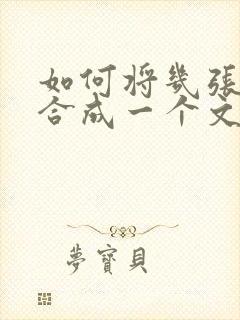 如何将几張
合成一个文
夢寶貝